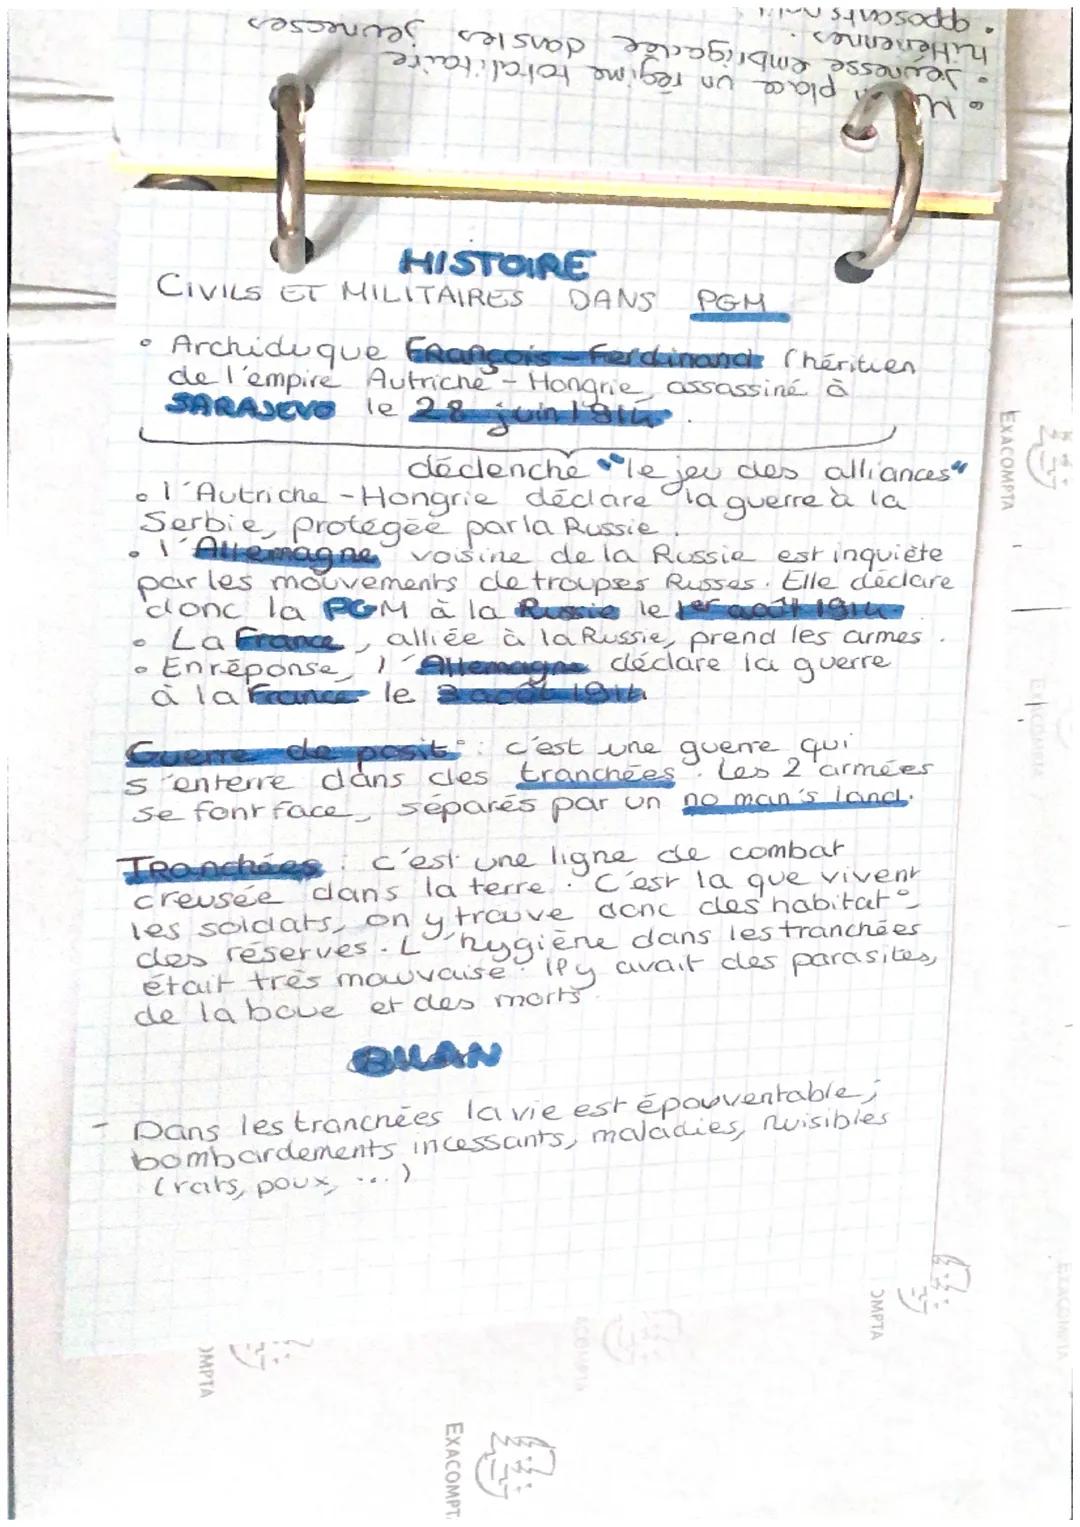 • Mis en place un régime totalitaire
• Jeunesse embrigadée dans les jeunesses
hitlériennes.
• opposants
HISTOIRE
CIVILS ET MILITAIRES DANS PGM
• Archiduque François-Ferdinand (héritien
de l'empire Autriche-Hongrie, assassiné à
SARAJEVO le 28 juin 1914.
déclenche "le jeu des alliances"
• l'Autriche-Hongrie déclare la guerre à la
Serbie, protégée par la Russie.
• l'Allemagne voisine de la Russie est inquiète
par les mouvements de troupes Russes. Elle déclare
donc la PGM à la Russie le 1er août 1914.
• La France, alliée à la Russie, prend les armes.
• En réponse, l'Allemagne déclare la guerre
à la France le 3 août 1914
Guerre de posit° : c'est une guerre qui
s'enterre dans des tranchées. Les 2 armées
se font face, séparés par un no man's land.
Tranchées : c'est une ligne de combat
creusée dans la terre. C'est la que vivent
les soldats, on y trouve donc des habitat°
des réserves. L'hygiène dans les tranchées
était très mauvaise. Il y avait des parasites,
de la boue et des morts.
BILAN
- Dans les tranchées la vie est épouventable;
bombardements incessants, maladies, nuisibles
(rats, poux, ...)
EXACOMPTA
EXACOMPTA
OMPTA
OMPTA
ACOMPTA
EXACOMPTA
EXACOMPT